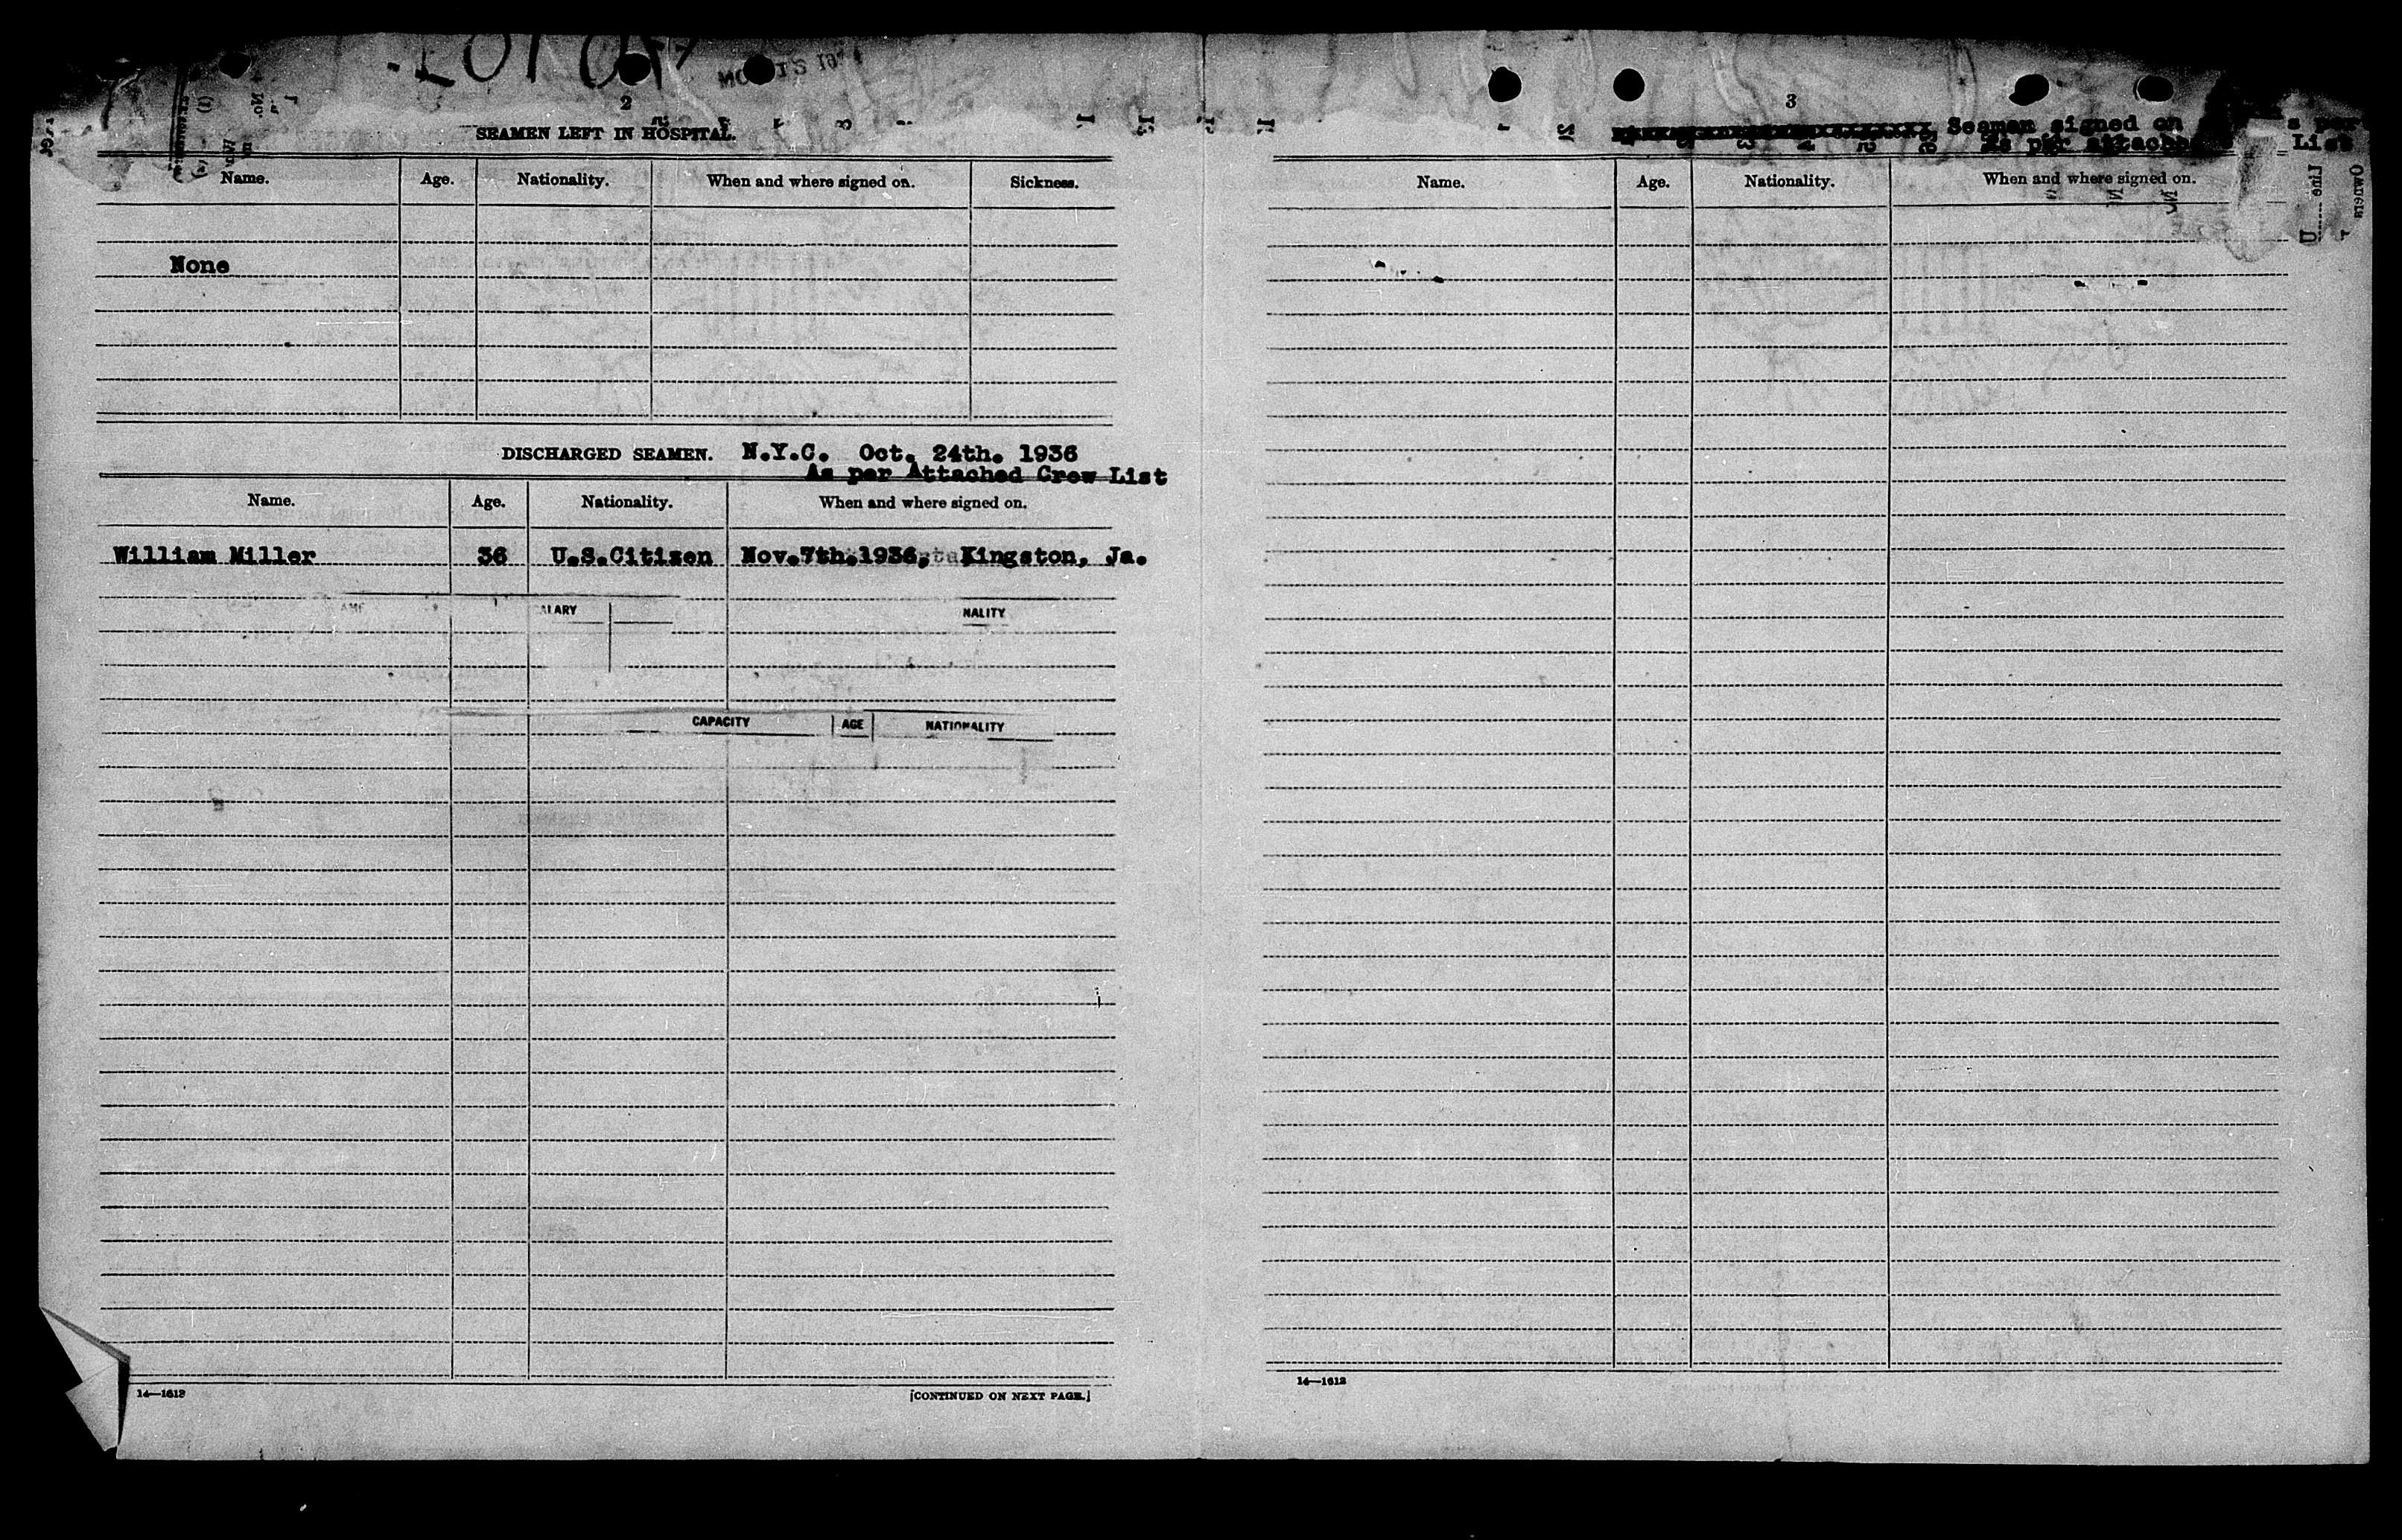 2
SEAMEN LEFT IN HOSPITAL.
Name. Age. Nationality. When and where signed on. Sickness.
None
DISCHARGED SEAMEN. N.Y.C. Oct. 24th. 1936
As per Attached Crew List
Name. Age. Nationality. When and where signed on.
William Miller 36 U.S.Citizen Nov.7th.1936, Kingston, Ja.
ALARY NALITY
CAPACITY AGE NATIONALITY
14—1613 [CONTINUED ON NEXT PAGE.]
3
Seamen signed on
As per attached List
Name. Age. Nationality. When and where signed on.
Owners
Line
14—1613